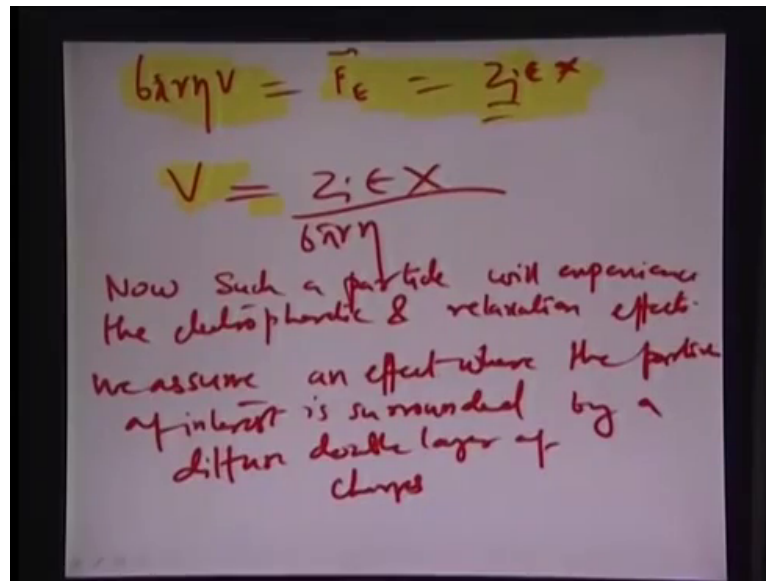 6πrηV = F⃗_ϵ = Z_i ϵ X
V = Z_i ϵ X / 6πrη
Now Such a particle will experience
the electrophoretic & relaxation effects.
We assume an effect where the particle
of interest is surrounded by a
diffuse double layer of
charges